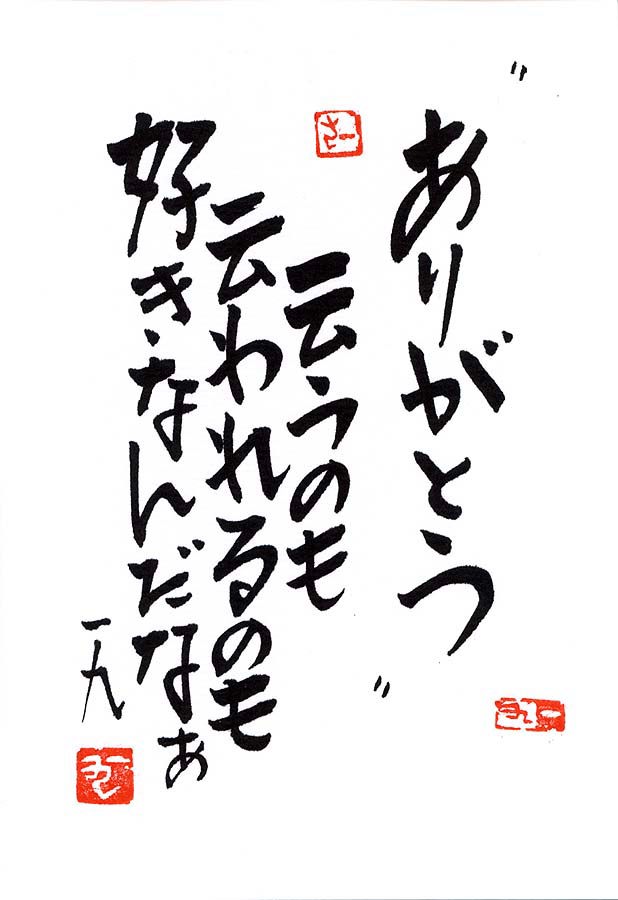 〝ありがとう〟
云うのも
云われるのも
好きなんだなぁ
一九